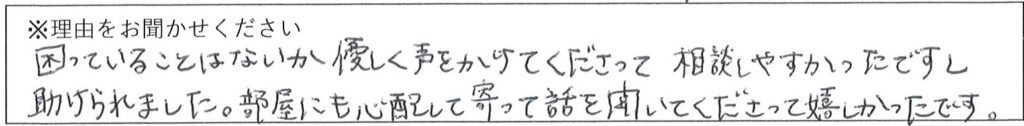 ※理由をお聞かせください
困っていることはないか優しく声をかけてくださって 相談しやすかったですし
助けられました。部屋にも心配して寄って話を聞いてくださって嬉しかったです。